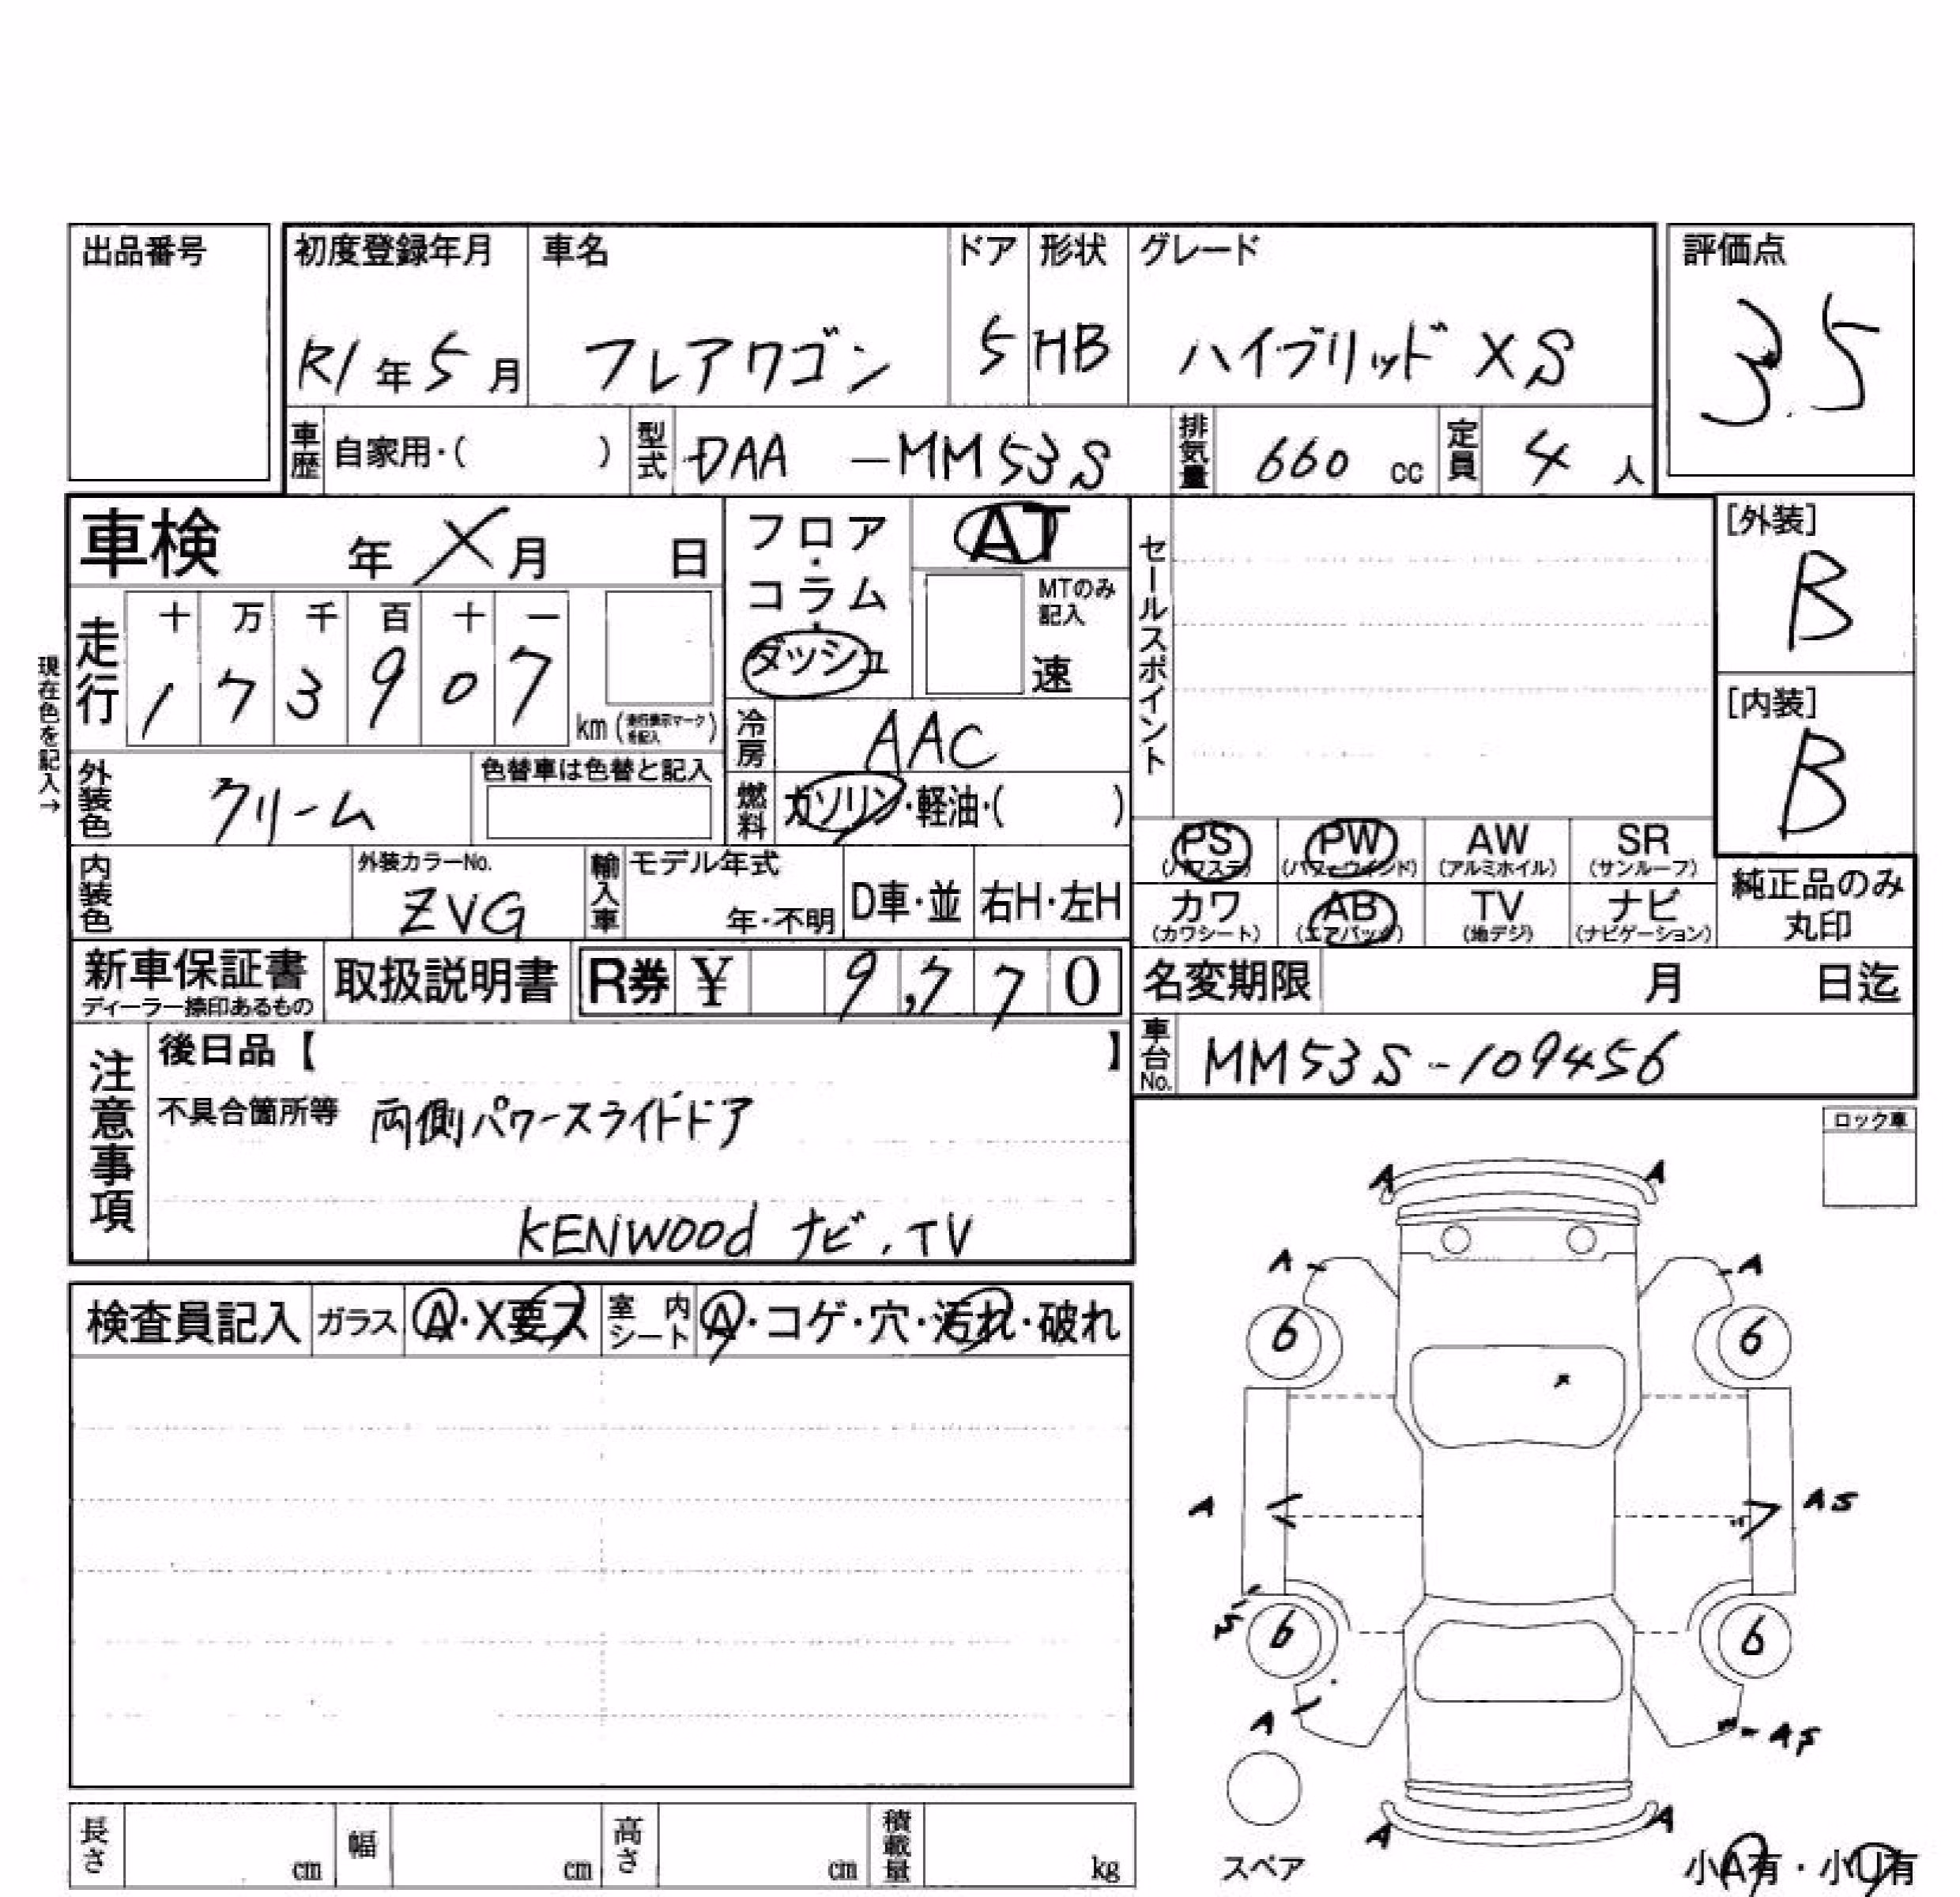 出品番号
初度登録年月 車名 ドア 形状 グレード 評価点
R1年5月 フレアワゴン 5 HB ハイブリッド XS 3.5
車歴 自家用・( ) 型式 DAA -MM53S 排気量 660 cc 定員 4 人
車検 年 X 月 日
フロア・コラム・ダッシュ
AT
MTのみ記入
速
セールスポイント
[外装]
B
[内装]
B
現在色を記入→
走行 十 万 千 百 十 一
1 7 3 9 0 7 km
冷房 AAC
外装色 クリーム 色替車は色替と記入
燃料 ガソリン・軽油・( )
PS (パワステ) PW (パワーウィンド) AW (アルミホイル) SR (サンルーフ)
カワ (カワシート) AB (エアバッグ) TV (地デジ) ナビ (ナビゲーション)
純正品のみ丸印
内装色 外装カラーNo. ZVG 輸入車 モデル年式 年・不明 D車・並 右H・左H
新車保証書 ディーラー捺印あるもの 取扱説明書 R券 ¥ 9,770
名変期限 月 日迄
車台No. MM53S-109456
注意事項
後日品【 】
不具合箇所等 両側パワースライドドア
KENWOOD ナビ.TV
ロック車
検査員記入 ガラス A・X要ス 室内シート A・コゲ・穴・汚れ・破れ
A A
A A
6 6
A AS
S 6 6
A AS
A A
スペア
小A有・小U有
長さ cm 幅 cm 高さ cm 積載量 kg